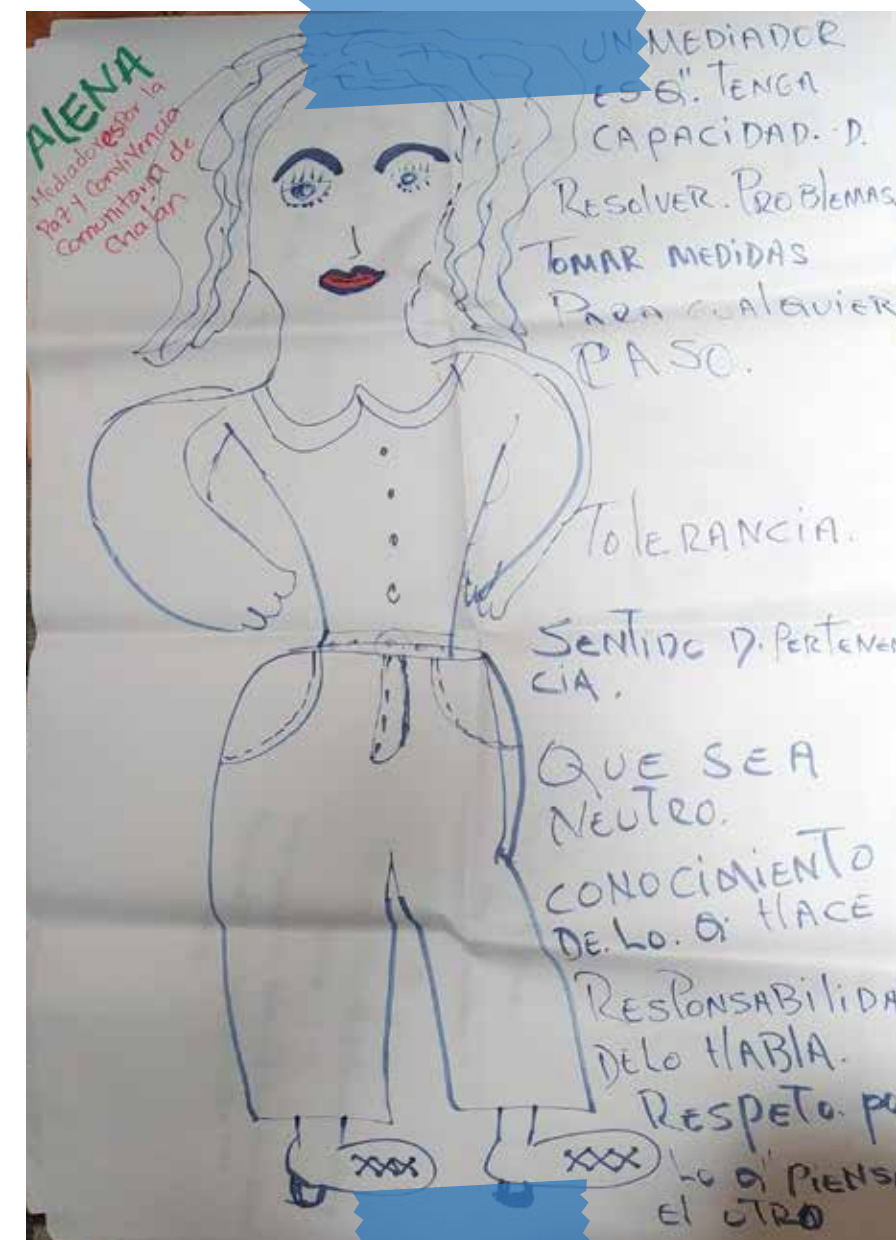 ALENA
Mediadores por la
Paz y Convivencia
Comunitaria de
Chalán
UN MEDIADOR
ES Q". TENGA
CAPACIDAD. D.
RESOLVER. PROBLEMAS
TOMAR MEDIDAS
PARA CUALQUIER
PASO.
TOLERANCIA.
SENTIDO D. PERTENEN
CIA.
QUE SEA
NEUTRO.
CONOCIMIENTO
DE. LO. Q' HACE
RESPONSABILIDA
DELO HABLA.
RESPETO. PO
LO Q' PIENSA
El OTRO